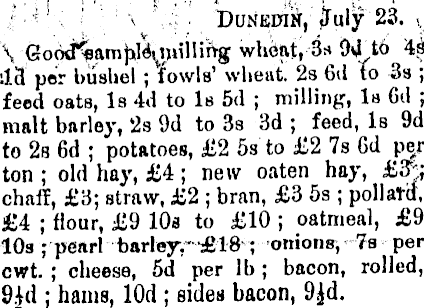 DUNEDIN, July 23.
Good sample milling wheat, 3s 9d to 4s
1d per bushel ; fowls' wheat. 2s 6d to 3s ;
feed oats, 1s 4d to 1s 5d ; milling, 1s 6d ;
malt barley, 2s 9d to 3s 3d ; feed, 1s 9d
to 2s 6d ; potatoes, £2 5s to £2 7s 6d per
ton ; old hay, £4 ; new oaten hay, £3 ;
chaff, £3; straw, £2 ; bran, £3 5s ; pollard,
£4 ; flour, £9 10s to £10 ; oatmeal, £9
10s ; pearl barley, £18 ; onions, 7s per
cwt. ; cheese, 5d per lb ; bacon, rolled,
9½d ; hams, 10d ; sides bacon, 9½d.